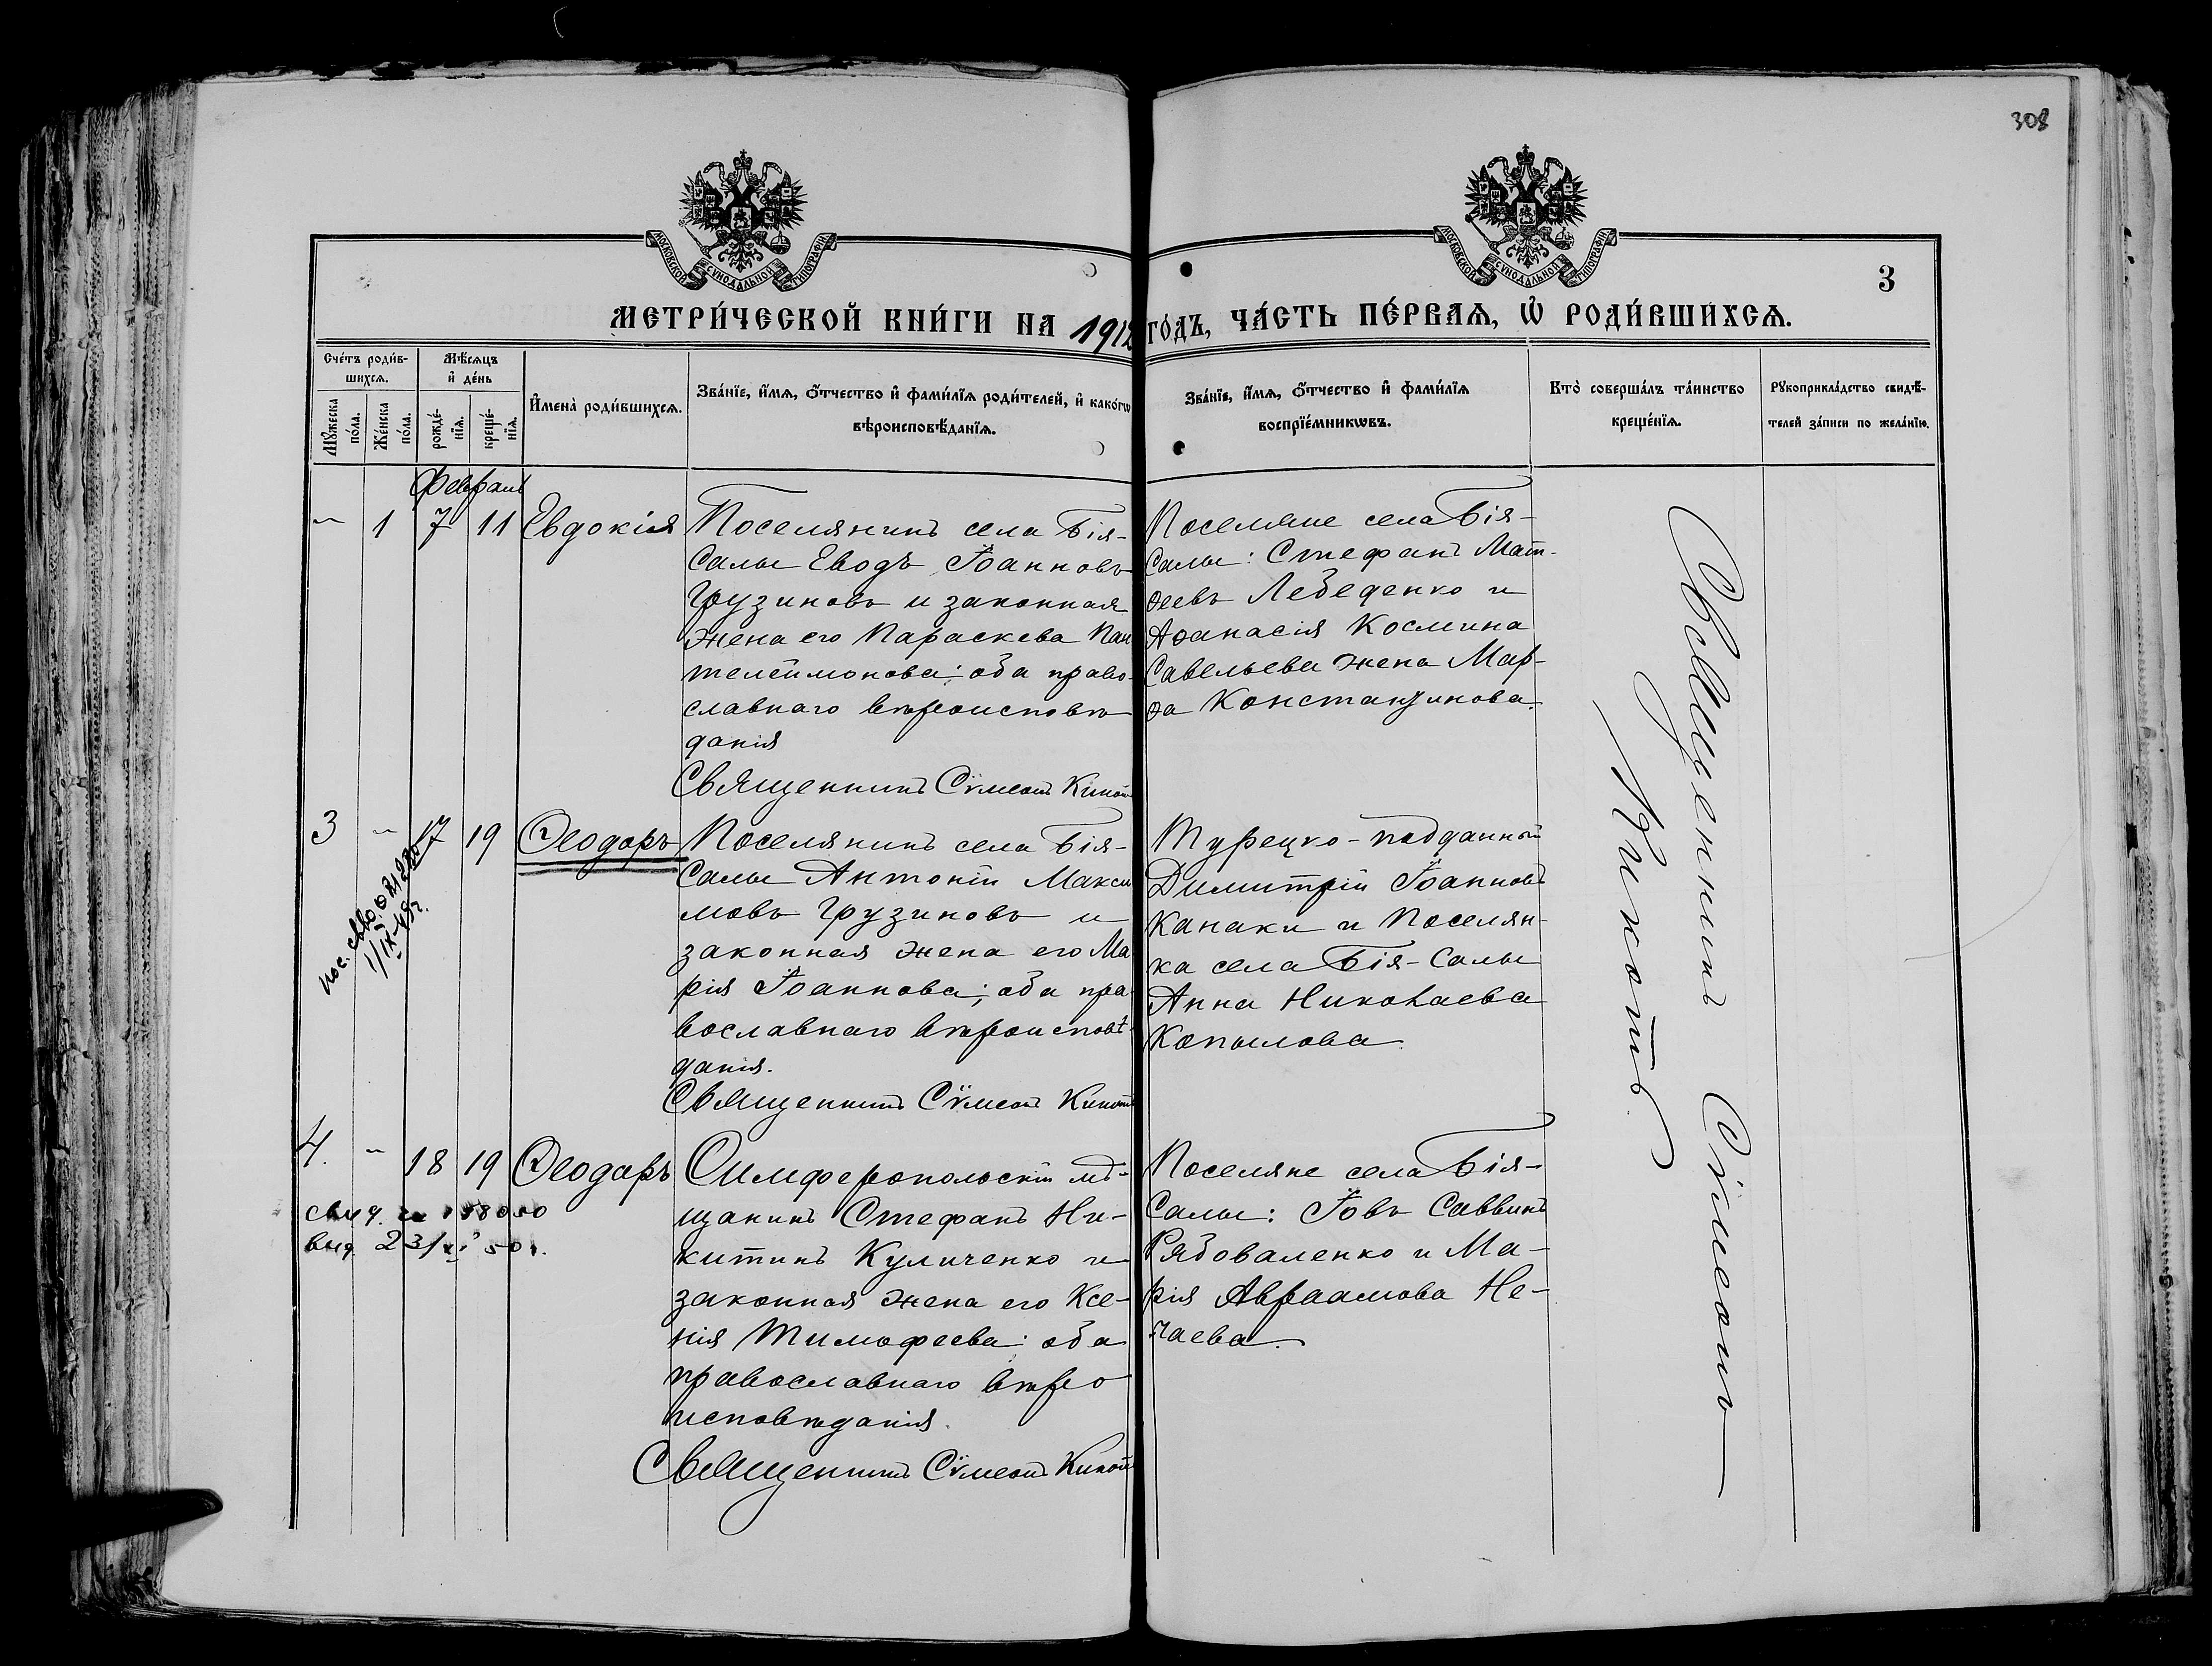 308
МОСКОВСКОЙ СѴНОДАЛЬНОЙ ТИПОГРАФІИ
МОСКОВСКОЙ СѴНОДАЛЬНОЙ ТИПОГРАФІИ
3
МЕТРИ́ЧЕСКОЙ КНИ́ГИ НА 1912 ГО́ДЪ, ЧА́СТЬ ПЕ́РВАѦ, Ѡ҆ РОДИ́ВШИХСѦ.
Сче́тъ роди́в-
шихсѧ.
Мꙋ́жеска
по́ла.
Же́нска
по́ла.
Мѣ́сѧцъ
и҆ де́нь
рожде́-
нїѧ.
креще́-
нїѧ.
И҆мена̀ роди́вшихсѧ.
Зва́нїе, и҆́мѧ, ѻ҆́тчество и҆ фами́лїѧ роди́телей, и҆ како́гѡ
вѣроисповѣ́данїѧ.
Зва́нїе, и҆́мѧ, ѻ҆́тчество и҆ фами́лїѧ
воспрїе́мникѡвъ.
Кто̀ соверша́лъ та́инство
креще́нїѧ.
Рꙋкоприкла́дство свидѣ́-
телей за́писи по жела́нїю.
Февраль
- 1 7 11 Евдокія
Поселянинъ села Бія-
Салы Еводъ Іоанновъ
Грузиновъ и законная
жена его Параскева Пан
телеймонова; оба право-
славнаго вѣроисповѣ
данія
Священникъ Сѵмеонъ Кикотъ
Поселяне села Бія-
Салы: Стефанъ Мат-
ѳеевъ Лебеденко и
Аѳанасія Космина
Савельева жена Мар-
ѳа Константинова.
3 - 17 19 Ѳеодоръ
Поселянинъ села Бія-
Салы Антоній Макси
мовъ Грузиновъ и
законная жена его Ма
рія Іоаннова; оба пра-
вославнаго вѣроисповѣ-
данія.
Священникъ Сѵмеонъ Кикотъ
Турецко-подданный
Димитрій Іоанновъ
Канаки и Поселян-
ка села Бія-Салы
Анна Николаева
Копылова
1/IX-48г.
4. - 18 19 Ѳеодоръ
вид. 23/
Симферопольскій мѣ-
щанинъ Стефанъ Ни-
китинъ Куличенко и
законная жена его Ксе-
нія Тимофеева; оба
православнаго вѣро
исповѣданія.
Священникъ Сѵмеонъ Кикотъ
Поселяне села Бія-
Салы: Іовъ Саввинъ
Рябоваленко и Ма-
рія Авраамова Не-
чаева.
Священникъ Сѵмеонъ
Кикотъ